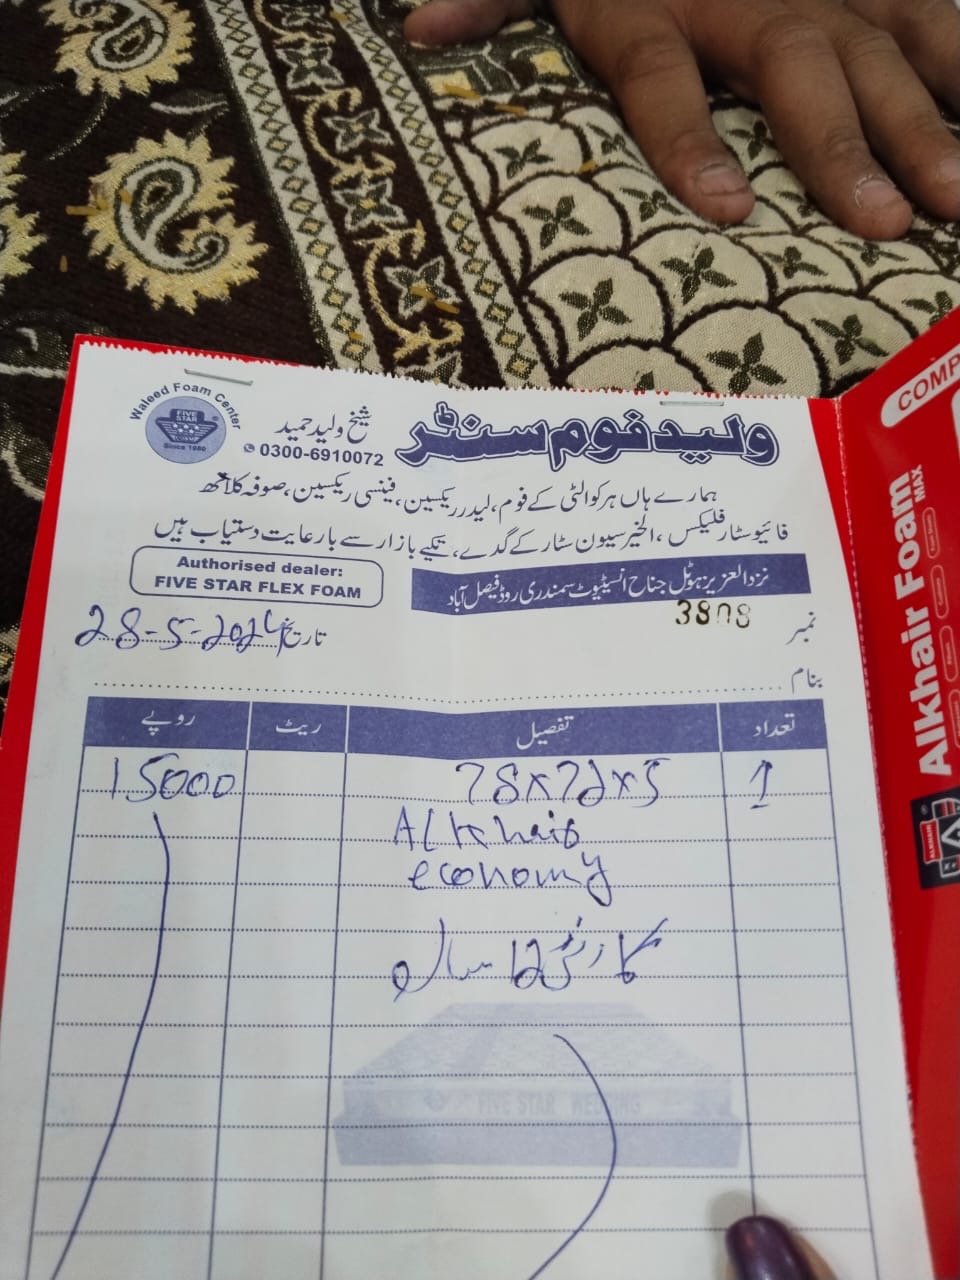 Waleed Foam Center
FIVE STAR
FOAM
Since 1980
شیخ ولید حمید
0300-6910072
ولید فوم سنٹر
ہمارے ہاں ہر کوالٹی کے فوم، لیدر ریکسین، فینسی ریکسین، صوفہ کلاتھ
فائیو سٹار فلیکس، الخیر سیون سٹار کے گدے، تکیے بازار سے بارعایت دستیاب ہیں
Authorised dealer:
FIVE STAR FLEX FOAM
نزد العزیز ہوٹل جناح انسٹیٹیوٹ سمندری روڈ فیصل آباد
نمبر 3808
تاریخ 28-5-2024
بنام
تعداد تفصیل ریٹ روپے
1 78x72x5 15000
ALKhair
economy
گارنٹی 12 سال
FIVE STAR WEDDING
COMP
Alkhair Foam
MAX
ALKHAIR